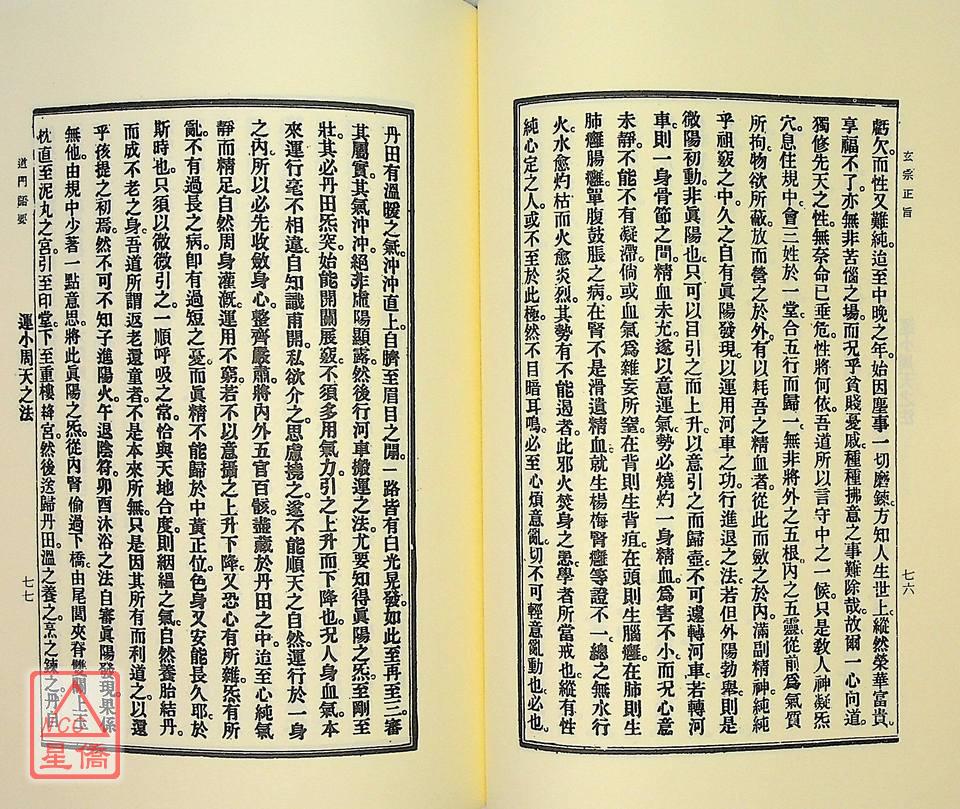 玄宗正旨
七六
虧欠。而性又難純。迨至中晚之年。始因塵事一切磨鍊。方知人生世上。縱然榮華富貴。
享福不了。亦無非苦惱之場。而況乎貧賤憂戚。種種拂意之事難除哉。故爾一心向道。
獨修先天之性。無奈命已垂危。性將何依。吾道所以言守中之一候。只是教人神凝炁
穴。息住規中。會三姓於一堂。合五行而歸一。無非將外之五根。內之五靈。從前爲氣質
所拘。物欲所蔽。放而營之於外。有以耗吾之精血者。從此而斂之於內。滿副精神。純純
乎祖竅之中。久之自有眞陽發現。以運用河車之功。行進退之法。若但外陽勃舉。則是
微陽初動。非眞陽也。只可以目引之而上升。以意引之而歸壺。不可遽轉河車。若轉河
車。則一身骨節之間。精血未充。遂以意運氣。勢必燒灼一身精血。爲害不小。而況心意
未靜。不能不有凝滯。倘或血氣爲雜妄所窒。在背則生背疽。在頭則生腦癰。在肺則生
肺癰腸癰單腹鼓脹之病。在腎不是滑遺精血。就生楊梅腎癰等證。不一。總之無水行
火。水愈灼枯。而火愈炎烈。其勢有不能遏者。此邪火焚身之患。學者所當戒也。縱有性
純心定之人。或不至於此極。然不目暗耳鳴。必至心煩意亂。切不可輕意亂動也。必也
丹田有溫暖之氣。沖沖直上。自臍至眉目之間。一路皆有白光晃發。如此至再至三。審
其屬實。其氣沖沖。絕非虛陽顯露。然後行河車搬運之法。尤要知得眞陽之炁。至剛至
壯。其必丹田炁突。始能開關展竅。不須多用氣力。引之上升而下降也。況人身血氣。本
來運行。毫不相違。自知識甫開。私欲介之。思慮撓之。遂不能順天之自然。運行於一身
之內。所以必先收斂身心。整齊嚴肅。將內外五官百骸。盡藏於丹田之中。迨至心純氣
靜而精足。自然周身灌漑。運用不窮。若不以意攝之上升下降。又恐心有所雜。炁有所
亂。不有過長之病。卽有過短之憂。而眞精不能歸於中黃正位。色身又安能長久耶。於
斯時也。只須以微微引之。一順呼吸之常。恰與天地合度。則絪緼之氣。自然養胎結丹。
而成不老之身。吾道所謂返老還童者。不是本來所無。只是因其所有而利道之。以還
乎孩提之初焉。然不可不知子進陽火。午退陰符。卯酉沐浴之法。自審眞陽發現。果係
無他。由規中少著一點意思。將此眞陽之炁。從內腎偷過下橋。由尾閭夾脊雙關上玉
枕。直至泥丸之宮。引至印堂。下至重樓絳宮。然後送歸丹田。溫之養之。烹之鍊之。丹自
道門語要
運小周天之法
七七
NCC
星僑